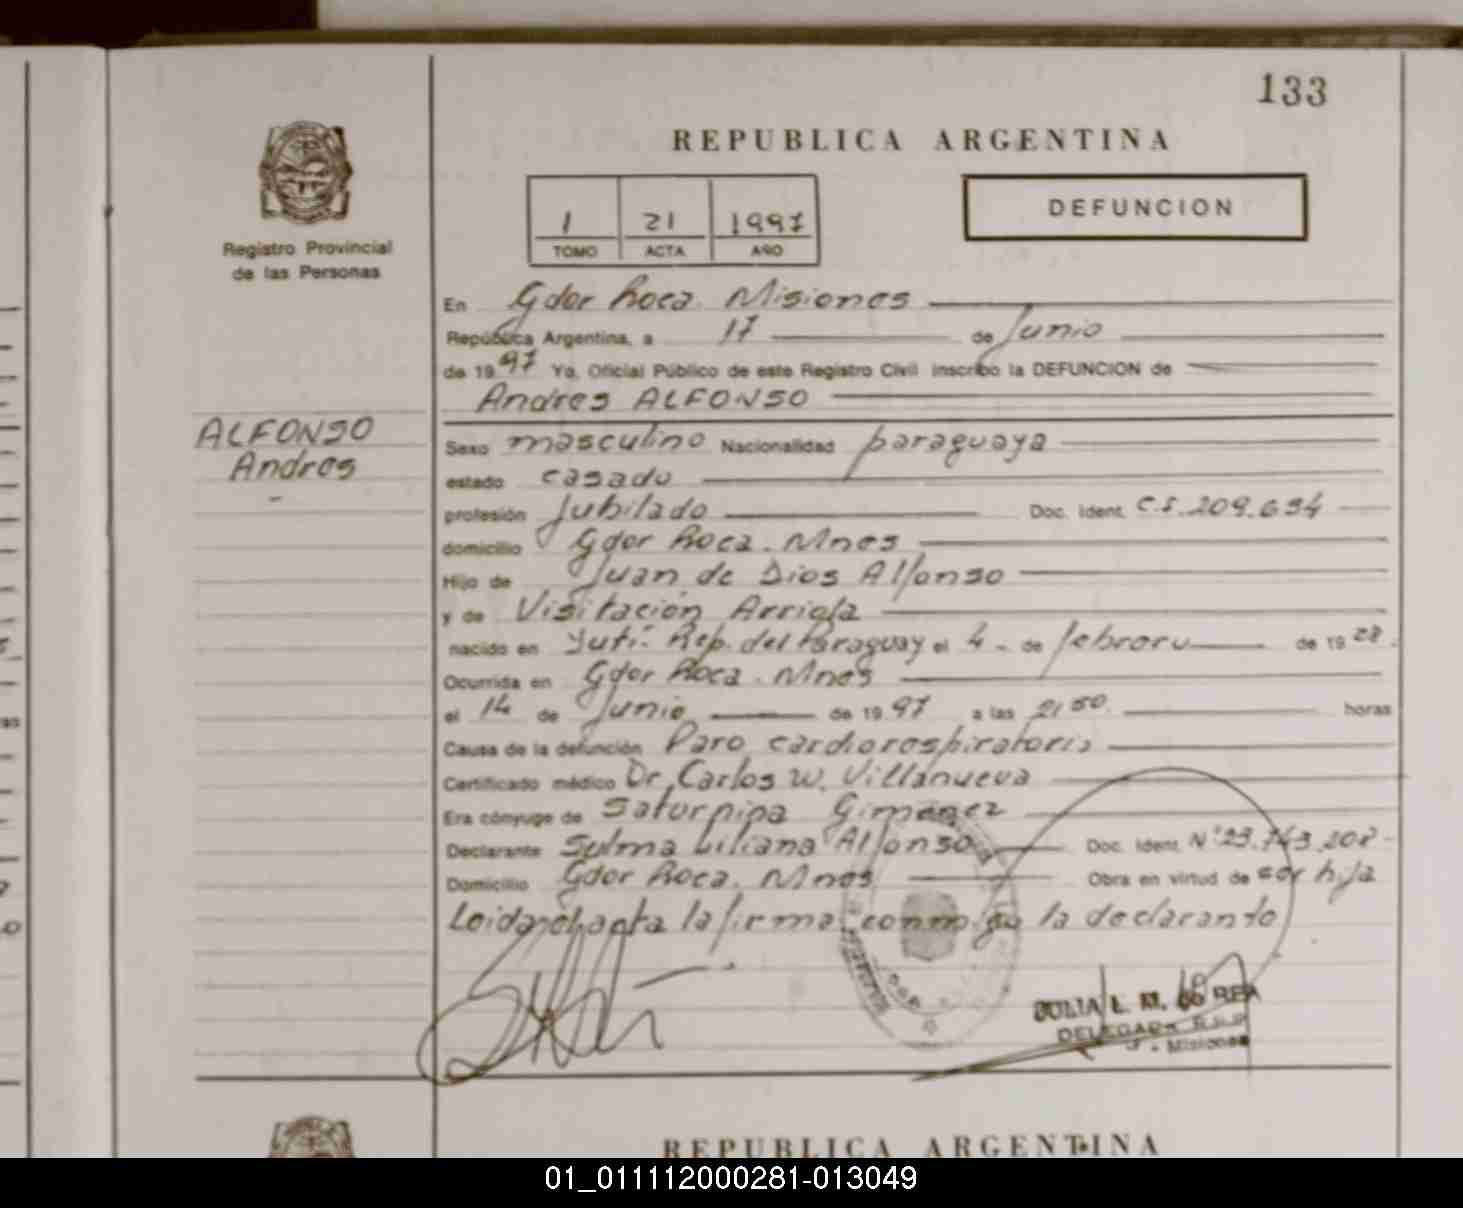 133
REPUBLICA ARGENTINA
Registro Provincial
de las Personas
1 21 1997
TOMO ACTA AÑO
DEFUNCION
En Gdor Roca. Misiones
República Argentina, a 17 de Junio
de 1997 Yo, Oficial Público de este Registro Civil inscribo la DEFUNCION de
Andres ALFONSO
ALFONSO
Andres
Sexo masculino Nacionalidad paraguaya
estado casado
profesión Jubilado Doc. Ident. C.I. 209.694
domicilio Gdor Roca. Mnes
Hijo de Juan de Dios Alfonso
y de Visitación Arriola
nacido en Yutí- Rep. del Paraguay el 4 - de febrero de 1928.
Ocurrida en Gdor Roca. Mnes
el 14 de Junio de 1997 a las 21 50. horas
Causa de la defunción Paro cardiorespiratorio
Certificado médico Dr. Carlos W. Villanueva
Era cónyuge de Saturnina Gimenez
Declarante Sulma Liliana Alfonso Doc. Ident. Nº 23.743.208
Domicilio Gdor Roca. Mnes Obra en virtud de ser hija
Leida el acta la firma conmigo la declarante
JULIA L. M. REA
DELEGADA
- Misiones
REPUBLICA ARGENTINA
01_011112000281-013049